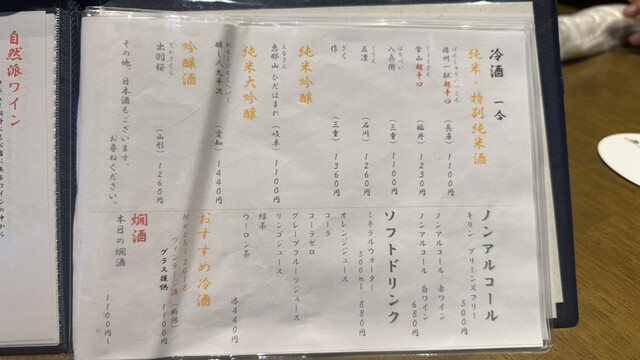 冷酒 一合
純米・特別純米酒
ばんしゅういっこん
播州一献超辛口 (兵庫) 1100円
じょうざん
常山超辛口 (福井) 1230円
はちべい
八兵衛 (三重) 1100円
ごりん
五凛 (石川) 1260円
ざく
作 (三重) 1360円
純米吟醸
えなさん
恵那山 ひだほまれ (岐阜) 1100円
純米大吟醸
醸し人九平次 (愛知) 1440円
吟醸酒
でわざくら
出羽桜 (山形) 1260円
その他、日本酒もございます。
お尋ねください。
ノンアルコール
キリン グリーンズフリー 500円
ノンアルコール 赤ワイン
ノンアルコール 白ワイン 680円
ソフトドリンク
ミネラルウォーター 500ml 880円
オレンジジュース
コーラ
コーラゼロ
グレープフルーツジュース
リンゴジュース
緑茶
ウーロン茶
各440円
おすすめ冷酒
ヴィンテージ酒 (新潟)
グラス提供 1100円
燗酒
本日の燗酒 1100円~
自然派ワイン